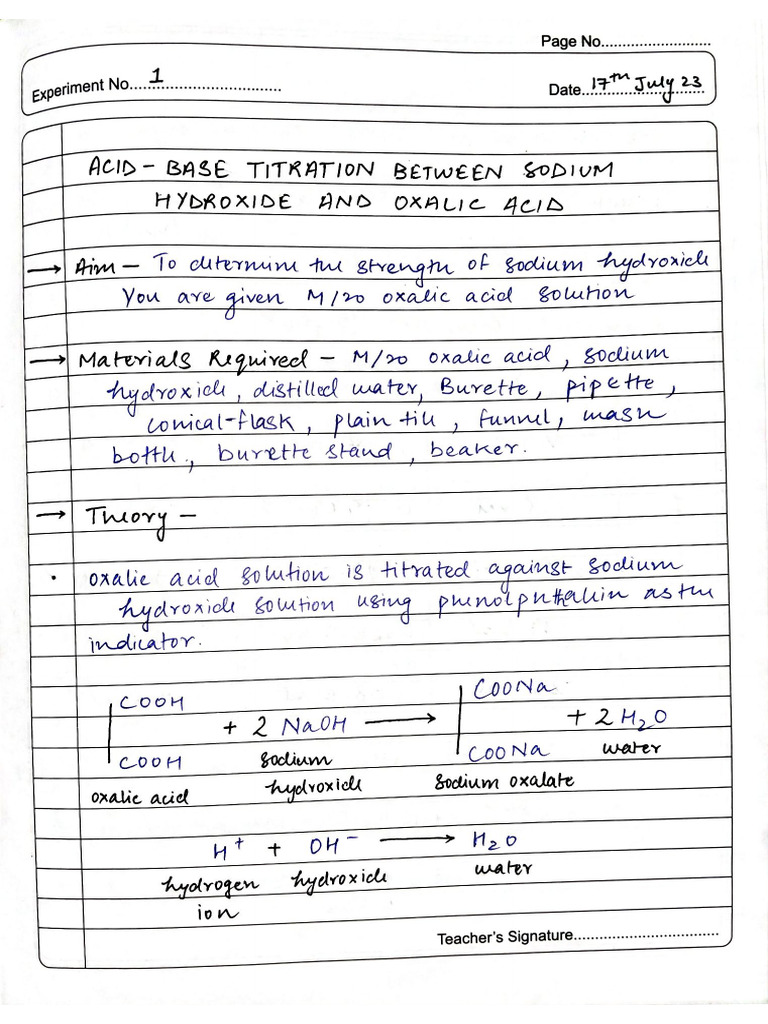 Page No..............................
Experiment No....1..............................
Date...17th July 23...
ACID - BASE TITRATION BETWEEN SODIUM
HYDROXIDE AND OXALIC ACID
→ Aim - To determine the strength of sodium hydroxide
You are given M/20 oxalic acid solution
→ Materials Required - M/20 oxalic acid, sodium
hydroxide, distilled water, Burette, pipette,
conical-flask, plain tile, funnel, wash
bottle, burette stand, beaker.
→ Theory -
• oxalic acid solution is titrated against sodium
hydroxide solution using phenolphthalein as the
indicator.
COOH COONa
+ 2 NaOH → + 2 H₂O
COOH sodium COONa water
oxalic acid hydroxide sodium oxalate
H⁺ + OH⁻ → H₂O
hydrogen hydroxide water
ion
Teacher's Signature..................................